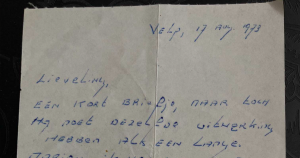 Velp, 17 Aug. 1973
Lieveling,
Een kort briefje, maar toch
Hij moet dezelfde uitwerking
hebben als een lange.